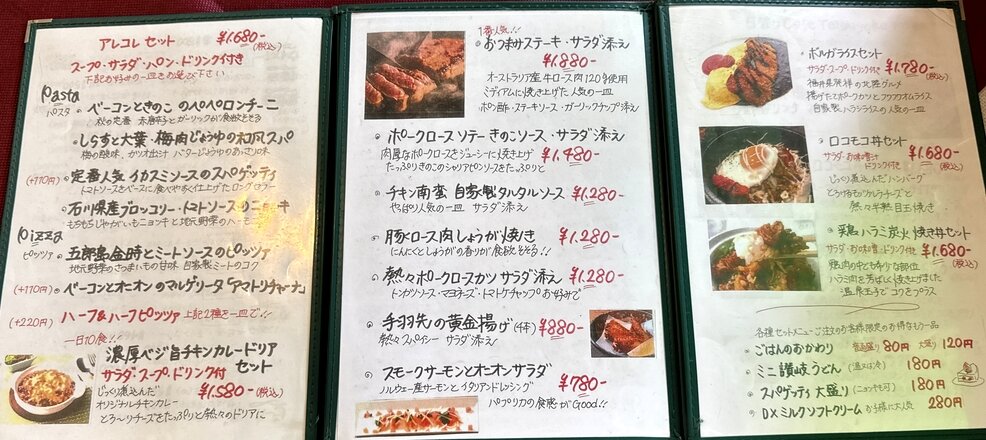 アレコレ セット ¥1,680-(税込)
スープ・サラダ・パン・ドリンク付き
下記お好みの一皿をお選び下さい
Pasta
パスタ
ベーコンときのこのペペロンチーニ
秋の定番 赤唐辛子とガーリックが食欲をそそる
しらすと大葉・梅肉じょうゆの和風スパ
梅の酸味、カツオ出汁 バターじょうゆのあっさり味
(+110円) 定番人気 イカスミソースのスパゲッティ
トマトソースをベースに食べやすく仕上げた
石川県産ブロッコリー・トマトソースのニョッキ
もちもちじゃがいもニョッキと地元野菜の
Pizza
ピッツァ 五郎島金時とミートソースのピッツァ
地元野菜のさつまいもの甘味 自家製ミートのコク
(+110円) ベーコンとオニオンのマルゲリータ「アマトリチャーナ」
(+220円) ハーフ&ハーフピッツァ 上記2種を一皿で!!
一日10食!!
濃厚ベジ旨チキンカレードリアセット
サラダ・スープ・ドリンク付
¥1,580-(税込)
じっくり煮込んだ
オリジナルチキンカレー
とろ〜りチーズをたっぷりと熱々のドリアに
1番人気!!
おつまみステーキ・サラダ添え
¥1,880-
オーストラリア産 牛ロース肉120g使用
ミディアムに焼き上げた人気の一皿
ポン酢・ステーキソース・ガーリックチップ添え
ポークロースソテー きのこソース・サラダ添え
肉厚なポークロースをジューシーに焼き上げ ¥1,480-
たっぷりきのこのシャリアピンソースをたっぷりと
チキン南蛮 自家製タルタルソース ¥1,280-
やっぱり人気の一皿 サラダ添え
豚ロース肉しょうが焼き ¥1,280-
にんにくとしょうがの香りが食欲そそる!!
熱々ポークロースカツ サラダ添え ¥1,280-
トンカツソース・マヨネーズ・トマトケチャップお好みで
手羽先の黄金揚げ(4本) ¥880-
熱々スパイシー サラダ添え
スモークサーモンとオニオンサラダ
ノルウェー産サーモンとイタリアンドレッシング ¥780-
パプリカの食感がGood!!
ボルガライスセット
サラダ・スープ・ドリンク付き ¥1,780-(税込)
福井県発祥の北陸グルメ
揚げたてポークカツとフワフワオムライス
自家製ハヤシライスの人気の一皿
ロコモコ丼セット
サラダ・お味噌汁 ドリンク付き ¥1,680-(税込)
じっくり煮込んだハンバーグ
とろけるカツレツチーズと
熱々半熟目玉焼き
鶏ハラミ炭火焼き丼セット
サラダ・お味噌汁・ドリンク付き ¥1,680(税込)
鶏肉の中でも希少な部位
ハラミ肉を芳ばしく焼き上げました
温泉玉子でコクをプラス
各種セットメニューご注文のお客様限定のお得なもう一品
ごはんのおかわり 普通盛り 80円 大盛 120円
ミニ讃岐うどん (温又は冷) 180円
スパゲッティ 大盛り(ニョッキも可) 180円
DXミルクソフトクリーム お子様に大人気 280円